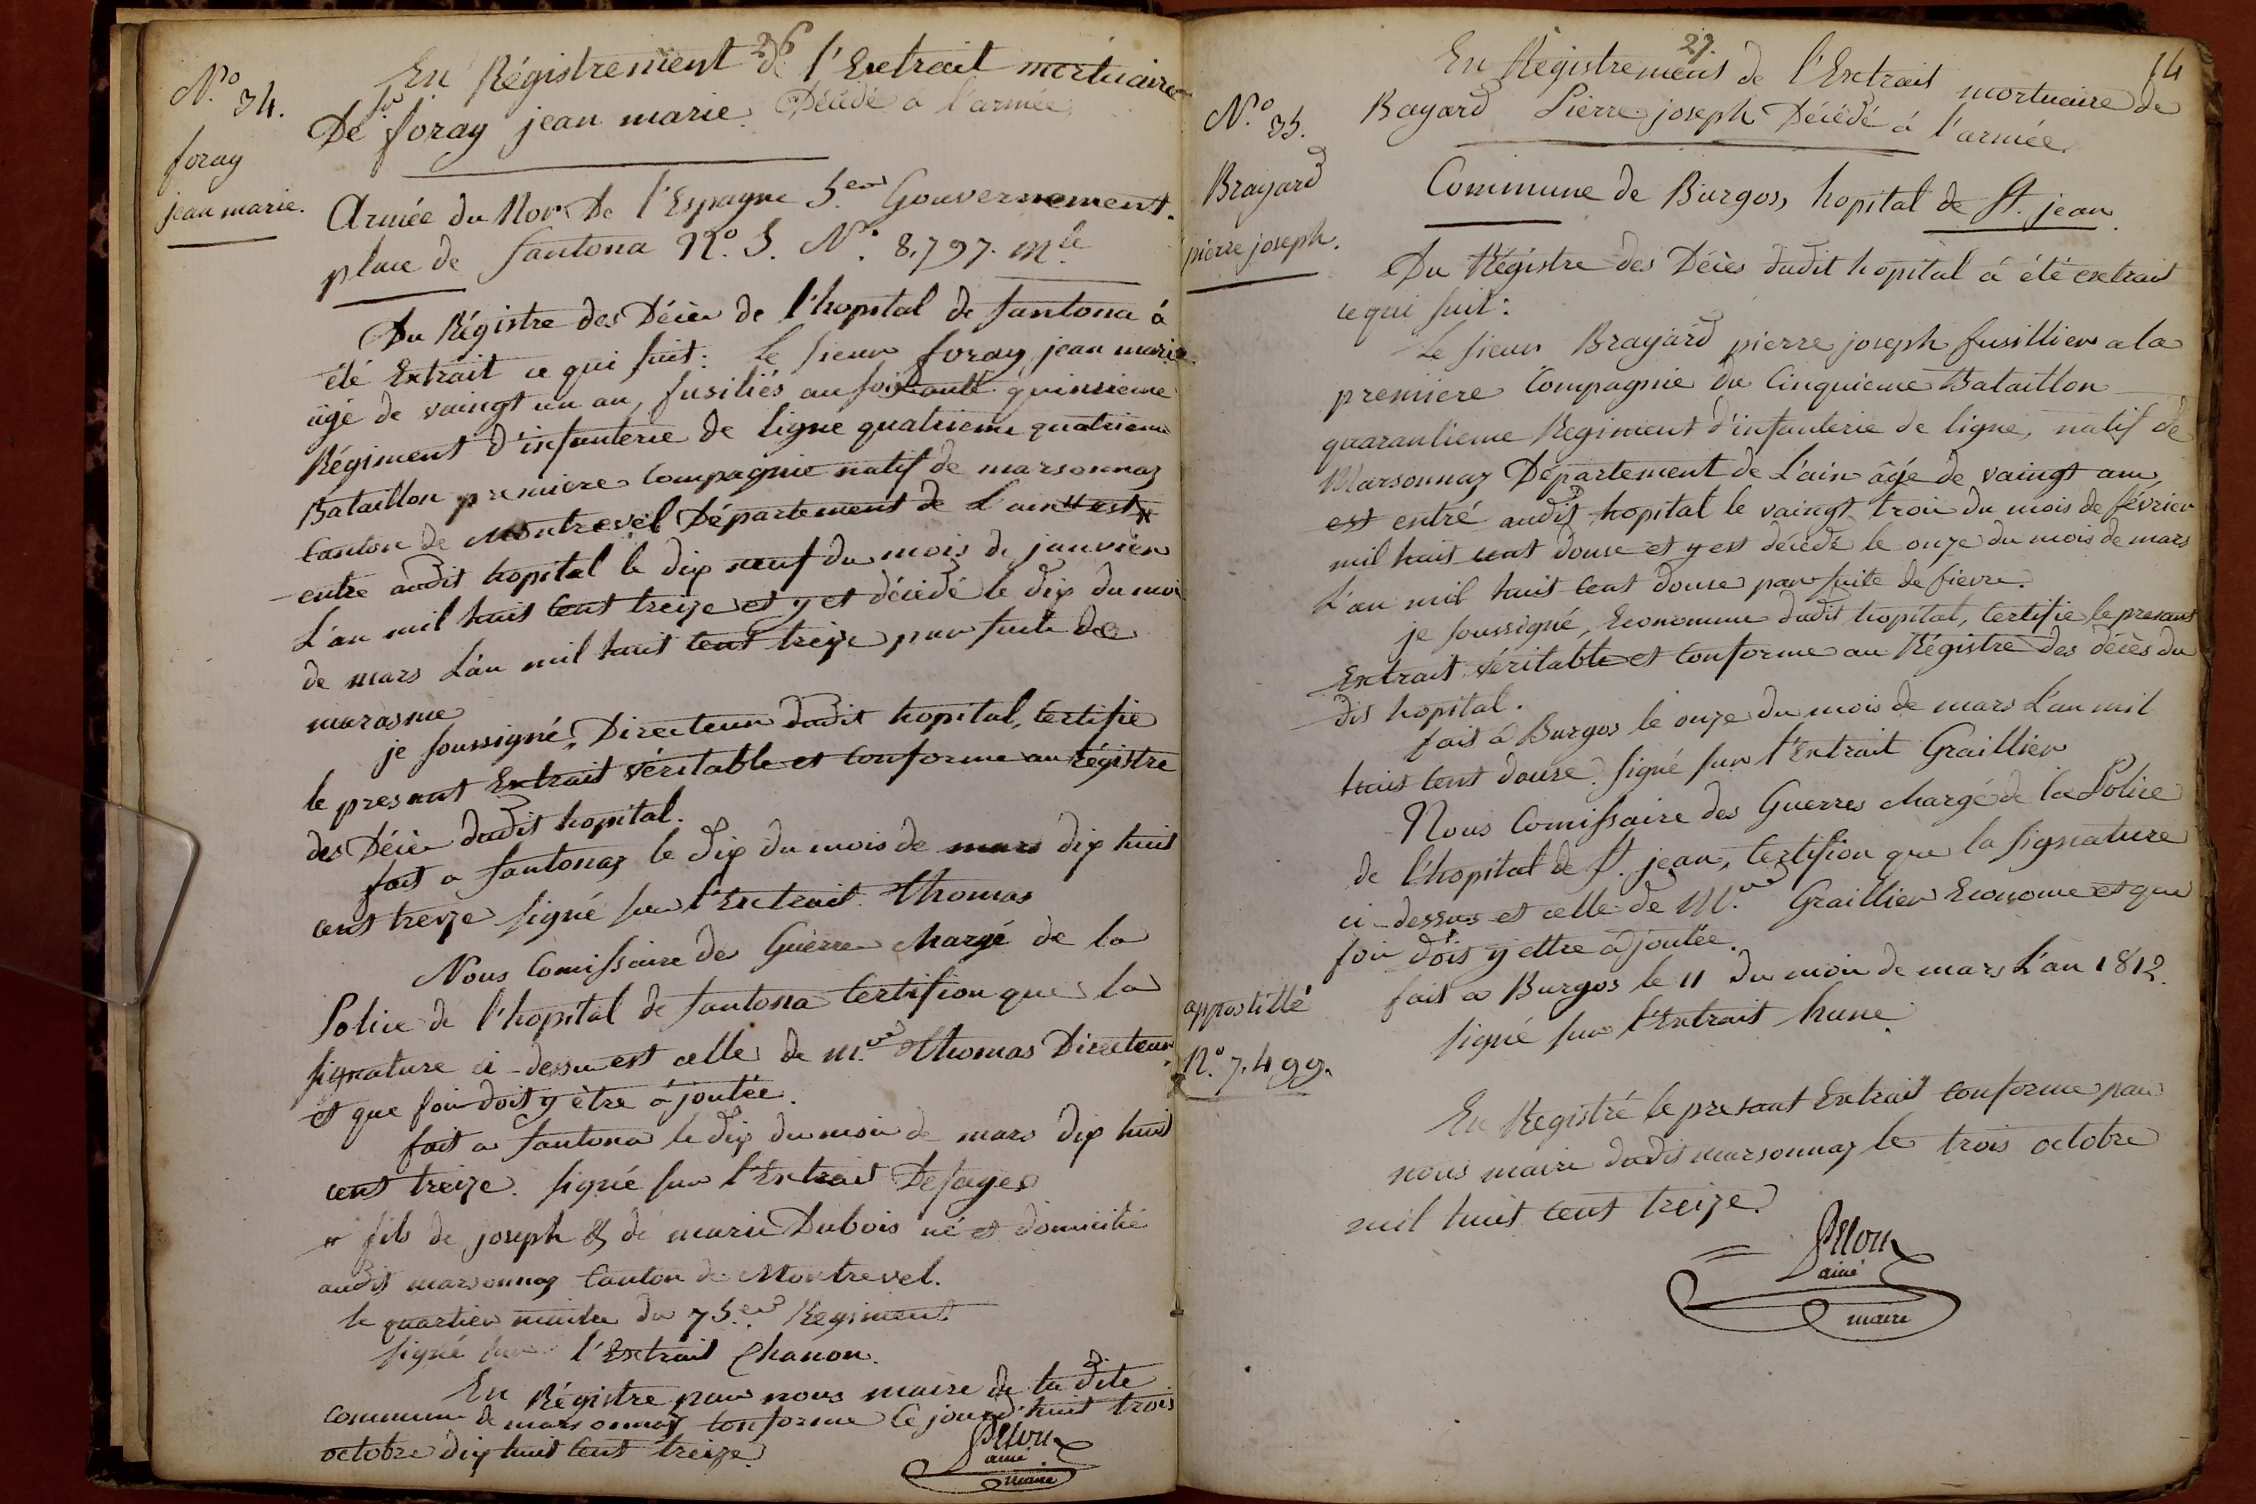 26
N.o 34.
foray
jean marie.
En Régistrement de l'Extrait mortuaire
De sr foray jean marie Décédé à l'armée
Armée du Nor De l'Espagne 5.em Gouvernement.
place de Santona N.o 5. N.o 8,797. m.le
Du Régistre des Décès de l'hopital de Santona à
été Extrait ce qui suit: Le sieur foray jean marie
âgé de vaingt un an, fusiliés au soixante quinsieme
Régiment d'infanterie de ligne quatrieme quatrieme
Bataillon premiere Compagnie natif de marsonnaz
Canton de Montrevel Département de L'ain est
entre audit hopital le dix neuf du mois de janvier
L'an mil huit Cent treize et y et décédé le dix du moi
de mars L'an mil huit Cent treize par suite de
marasme
je soussigné, Directeur dudit hopital, Certifie
le presant Extrait véritable et Conforme au Régistre
des Décès dudit hopital.
fait a Santonaz le dix du mois de mars dix huit
cent treize signé sur l'Extrait Thomas
Nous Comissaire de Guerre Chargé de la
Police de l'hopital de Santona Certifion que la
signature ci-dessu est celle de M.eur Thomas Directeur
et que foi doit y être àjoutée.
fait a Santona le dix du moi de mars dix huit
cent treize. signé sur l'Extrait Defages
fils de joseph & de marie Dubois né et domicilié
audit marsonnaz Canton de Montrevel.
le quartier maitre du 75.em Regiment
signé sur l'Extrait Chanon.
En Régistre par nous maire de la dite
Commune de marsonnaz Conforme Ce jourd'huit trois
octobre dix huit Cent treize
ainé
maire
27.
14
N.o 35.
Brayard
pierre joseph.
En Régistrement de l'Extrait mortuaire de
Bayard Pierre joseph Décédé à l'armée
Commune de Burgos, hopital de St. jean.
Du Régistre des Décès dudit hopital à été extrait
ce qui suit:
Le sieur Brayard pierre joseph fusillier a la
premiere Compagnie du Cinquieme Bataillon
quarantieme Regiment d'infanterie de ligne, natif de
Marsonnaz Département de L'ain âgé de vaingt an
est entré audit hopital le vaingt troi du mois de février
mil huit cent douse et y est décédé le onze du mois de mars
L'an mil huit Cent douse par suite de fievre.
je soussigné, Econome dudit hopital, Certifie le presant
Extrait véritable et Conforme au Régistre des décès du
dit hopital.
fait à Burgos le onze du mois de mars L'an mil
huit Cent douse. signé sur l'Extrait Graillier
Nous Comissaire des Guerres Chargé de la Police
de l'hopital de St. jean, Certifion que la signature
ci-dessus et celle de M.eur Graillier Econome et que
foi dois y ettre àjoutée.
fait a Burgos le 11 du moi de mars L'an 1812.
signé sur l'Extrait hune
appostillé
N.o 7,499.
En Registré le presant Extrait Conforme par
nous maire dudit marsonnaz le trois octobre
mil huit cent treize.
ainé
maire